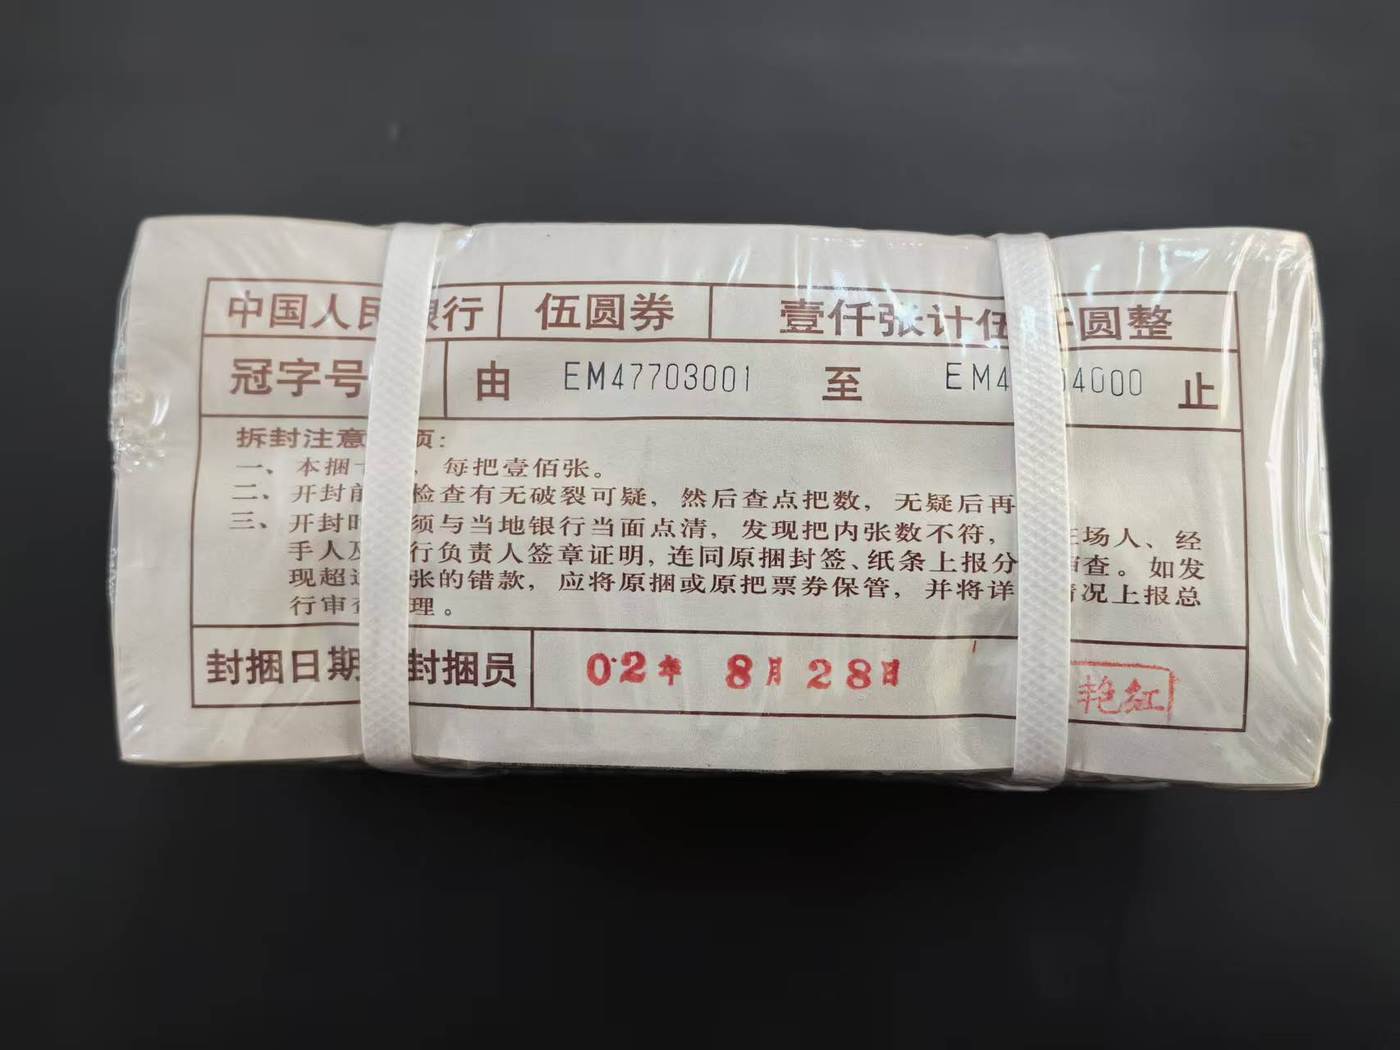 中国人民银行 伍圆券 壹仟张计伍 圆整
冠字号 由 EM47703001 至 EM4 04000 止
拆封注意 项：
一、本捆 ，每把壹佰张。
二、开封前 检查有无破裂可疑，然后查点把数，无疑后再
三、开封时 须与当地银行当面点清，发现把内张数不符， 在场人、经
手人及 行负责人签章证明，连同原捆封签、纸条上报分 审查。如发
现超过 张的错款，应将原捆或原把票券保管，并将详 情况上报总
行审查 理。
封捆日期 封捆员 02年 8月 28日 艳红